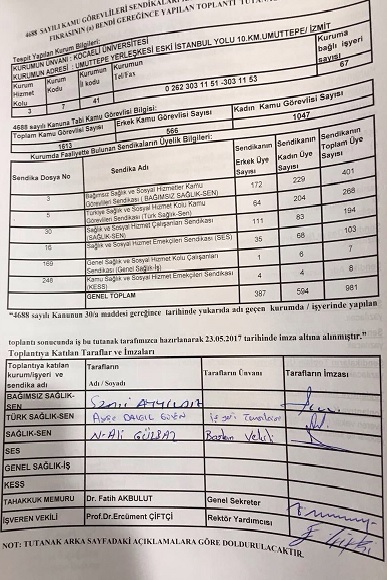 4688 SAYILI KAMU GÖREVLİLERİ SENDİKALARI
FIKRASININ (a) BENDİ GEREĞİNCE YAPILAN TOPLANTI TUTANA
Tespit Yapılan Kurum Bilgileri:
KURUMUN ÜNVANI : KOCAELİ ÜNİVERSİTESİ
KURUMUN ADRESİ : UMUTTEPE YERLEŞKESİ ESKİ İSTANBUL YOLU 10.KM.UMUTTEPE/ İZMİT
Kurum Hizmet Kolu Kurum Kodu Kurumun İl kodu Kurumun Tel/Fax Kuruma bağlı işyeri sayısı
3 7 41 0 262 303 11 51 -303 11 53 67
4688 sayılı Kanuna Tabi Kamu Görevlisi Bilgisi:
Toplam Kamu Görevlisi Sayısı Erkek Kamu Görevlisi Sayısı Kadın Kamu Görevlisi Sayısı
1613 566 1047
Kurumda Faaliyette Bulunan Sendikaların Üyelik Bilgileri:
Sendika Dosya No Sendika Adı Sendikanın Erkek Üye Sayısı Sendikanın Kadın Üye Sayısı Sendikanın Toplam Üye Sayısı
3 Bağımsız Sağlık ve Sosyal Hizmetler Kamu Görevlileri Sendikası ( BAĞIMSIZ SAĞLIK-SEN) 172 229 401
5 Türkiye Sağlık ve Sosyal Hizmet Kolu Kamu Görevlileri Sendikası (Türk Sağlık-Sen) 64 204 268
30 Sağlık ve Sosyal Hizmet Çalışanları Sendikası (SAĞLIK-SEN) 111 83 194
Sağlık ve Sosyal Hizmet Emekçileri Sendikası (SES) 35 68 103
169 Genel Sağlık ve Sosyal Hizmet Kolu Çalışanları Sendikası (Genel Sağlık-İş) 1 6 7
248 Kamu Sağlık ve Sosyal Hizmet Emekçileri Sendikası (KESS) 4 4 8
GENEL TOPLAM 387 594 981
"4688 sayılı Kanunun 30/a maddesi gereğince tarihinde yukarıda adı geçen kurumda / işyerinde yapılan
toplantı sonucunda iş bu tutanak tarafımızca hazırlanarak 23.05.2017 tarihinde imza altına alınmıştır."
Toplantıya Katılan Taraflar ve İmzaları
Toplantıya katılan kurum/işyeri ve sendika adı Tarafların Adı / Soyadı Tarafların Ünvanı Tarafların İmzası
BAĞIMSIZ SAĞLIK-SEN
TÜRK SAĞLIK-SEN Ayşe
SAĞLIK-SEN N. Ali Başkan Vekili
SES
GENEL SAĞLIK-İŞ
KESS
TAHAKKUK MEMURU Dr. Fatih AKBULUT Genel Sekreter
İŞVEREN VEKİLİ Prof.Dr.Ercüment ÇİFTÇİ Rektör Yardımcısı
NOT: TUTANAK ARKA SAYFADAKİ AÇIKLAMALARA GÖRE DOLDURULACAKTIR.